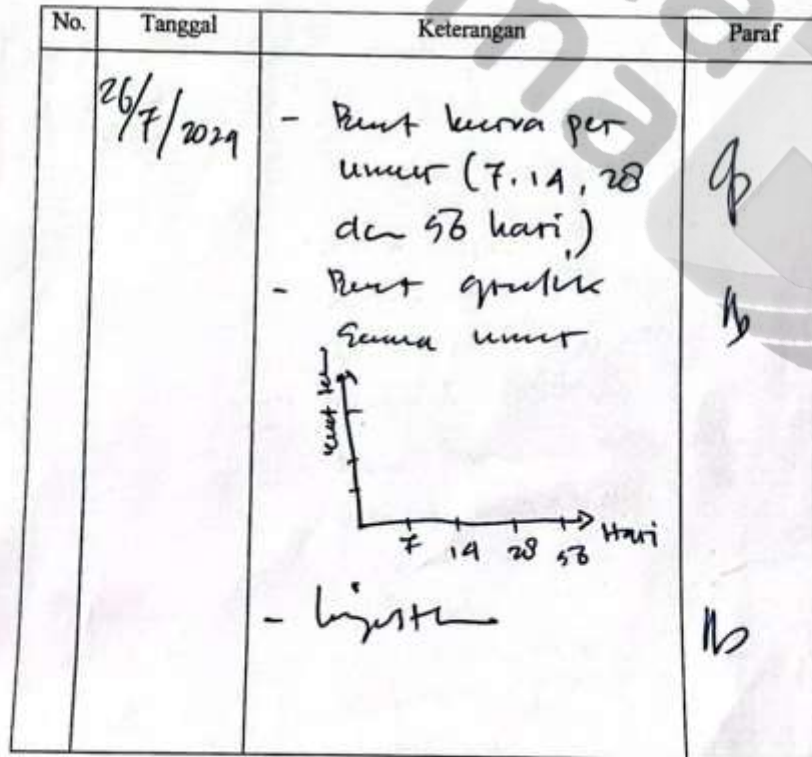 No. Tanggal Keterangan Paraf
26/7/2024 - Buat kurva per
umur (7. 14, 28
dan 56 hari)
- Buat grafik
semua umur
kuat
7 14 28 56 Hari
- Lanjutkan